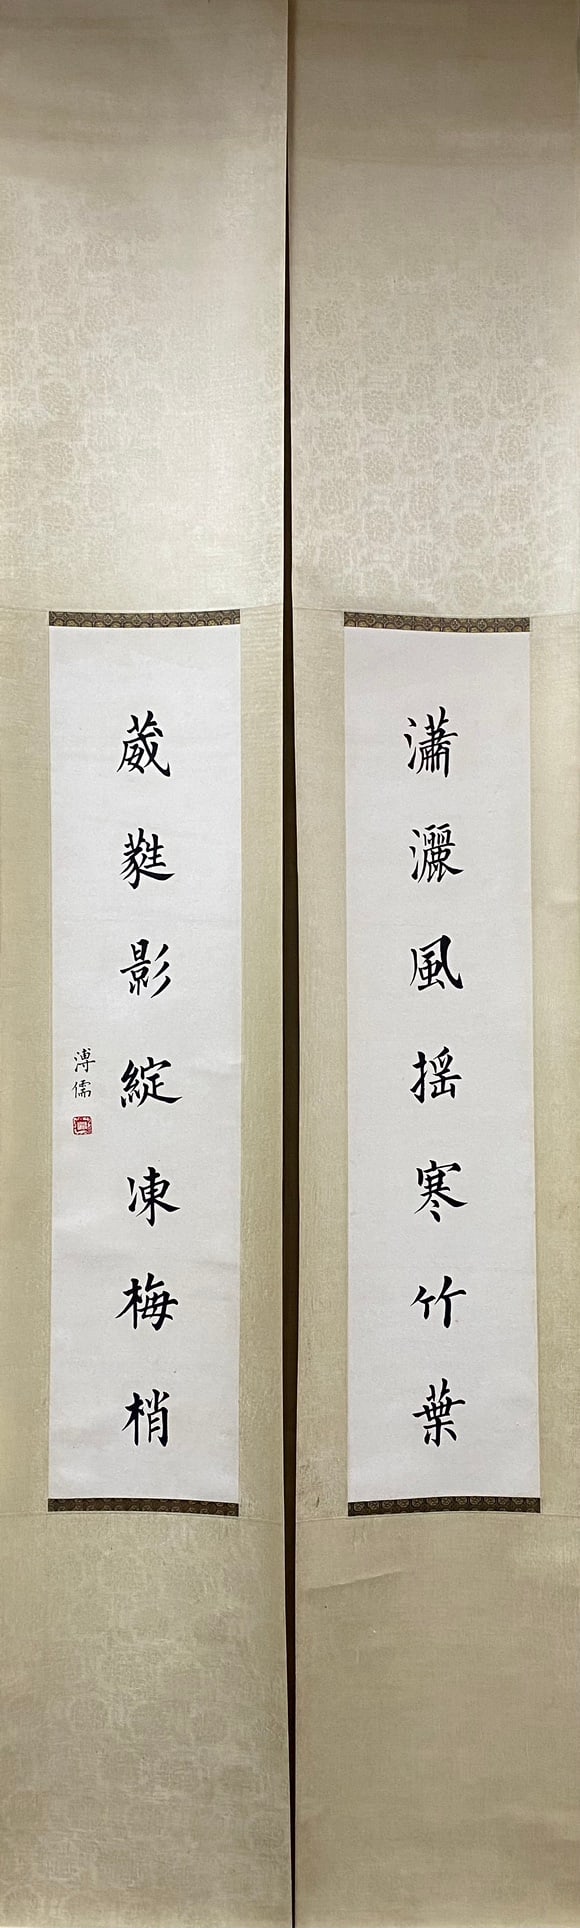 瀟灑風搖寒竹葉
葳蕤影綻凍梅梢
溥儒